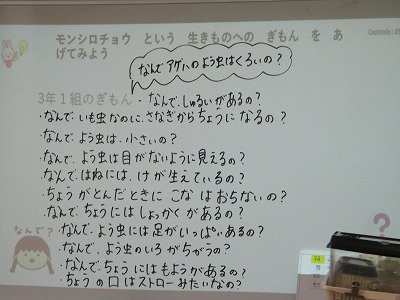 モンシロチョウ という 生きものへの ぎもん を あ
げてみよう
なんで アゲハのよう虫はくろいの?
3年1組のぎもん・なんで、しゅるいがあるの?
・なんで、いも虫なのに、さなぎからちょうに なるの?
・なんで よう虫は、小さいの?
・なんで、よう虫は目がないように見えるの?
なんで はねには、けが生えているの?
・ちょう がとんだときに こな はおちないの?
・なんで、ちょうには しょっかく があるの?
なんで?
・なんで、よう虫には足がいっぱいあるの?
・なんで、よう虫のいろ がちがうの?
・なんで、ちょうには もようがあるの?
・ちょう の 口はストローみたいなの?
?